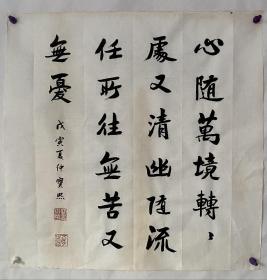 心随萬境轉轉
處又清幽随流
任所往無苦又
無憂
戊寅夏仲寶熙